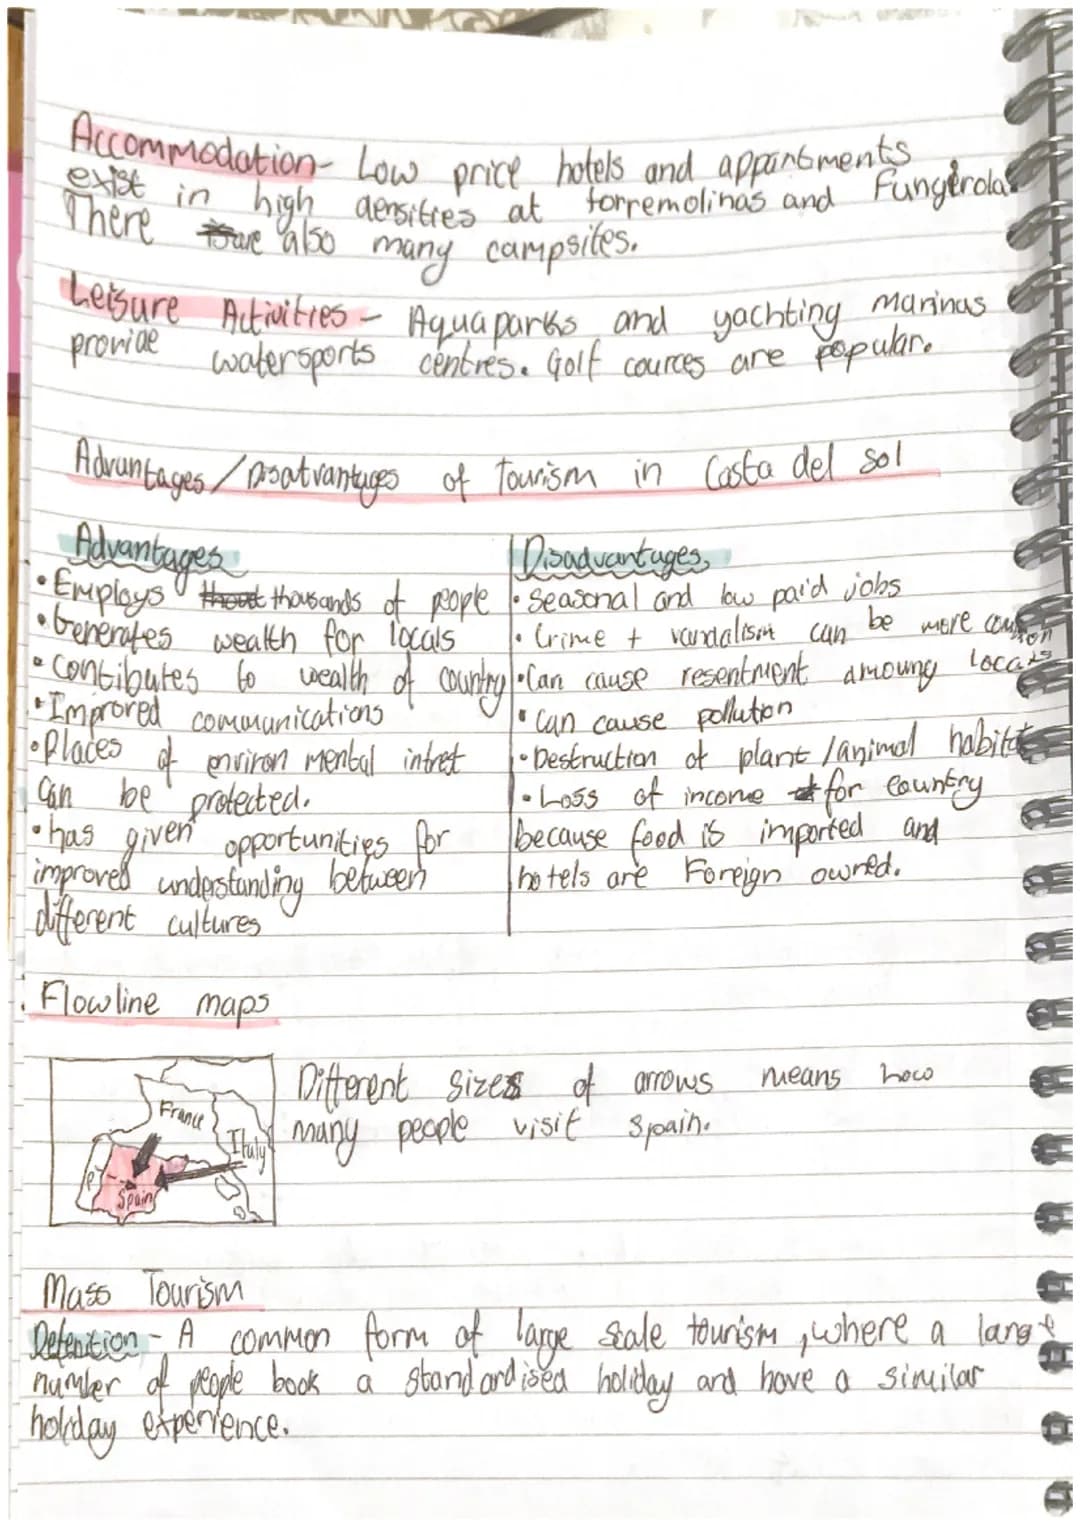 Accommodation - Low price hotels and appartments
exist in high densities at torremolinas and Fungerola
There are also many campsites.
Leisure Activities - Aquaparks and yachting marinas
provide watersports centres. Golf cources are popular.
Advantages / Disatvantages of Tourism in Costa del Sol
Advantages
• Employs thousands of people
• Generates wealth for locals
• Contibutes to wealth of country
• Improved communications
• Places of environ mental intret
Can be protected.
• has given opportunities for
improved understanding between
different cultures
Disadvantages
• Seasonal and low paid jobs
• Crime + vandalism can be more common
• Can cause resentment amoung locals
• Can cause pollution
• Destruction of plant / animal habitat
• Loss of income for Country
because food is imported and
hotels are Foreign owned.
Flowline maps
France
Italy
P
Spain
Different sizes of arrows means how
many people visit Spain.
Mass Tourism
Defenition - A common form of large scale tourism, where a large
number of people book a standardised holiday and have a similar
holiday experience.